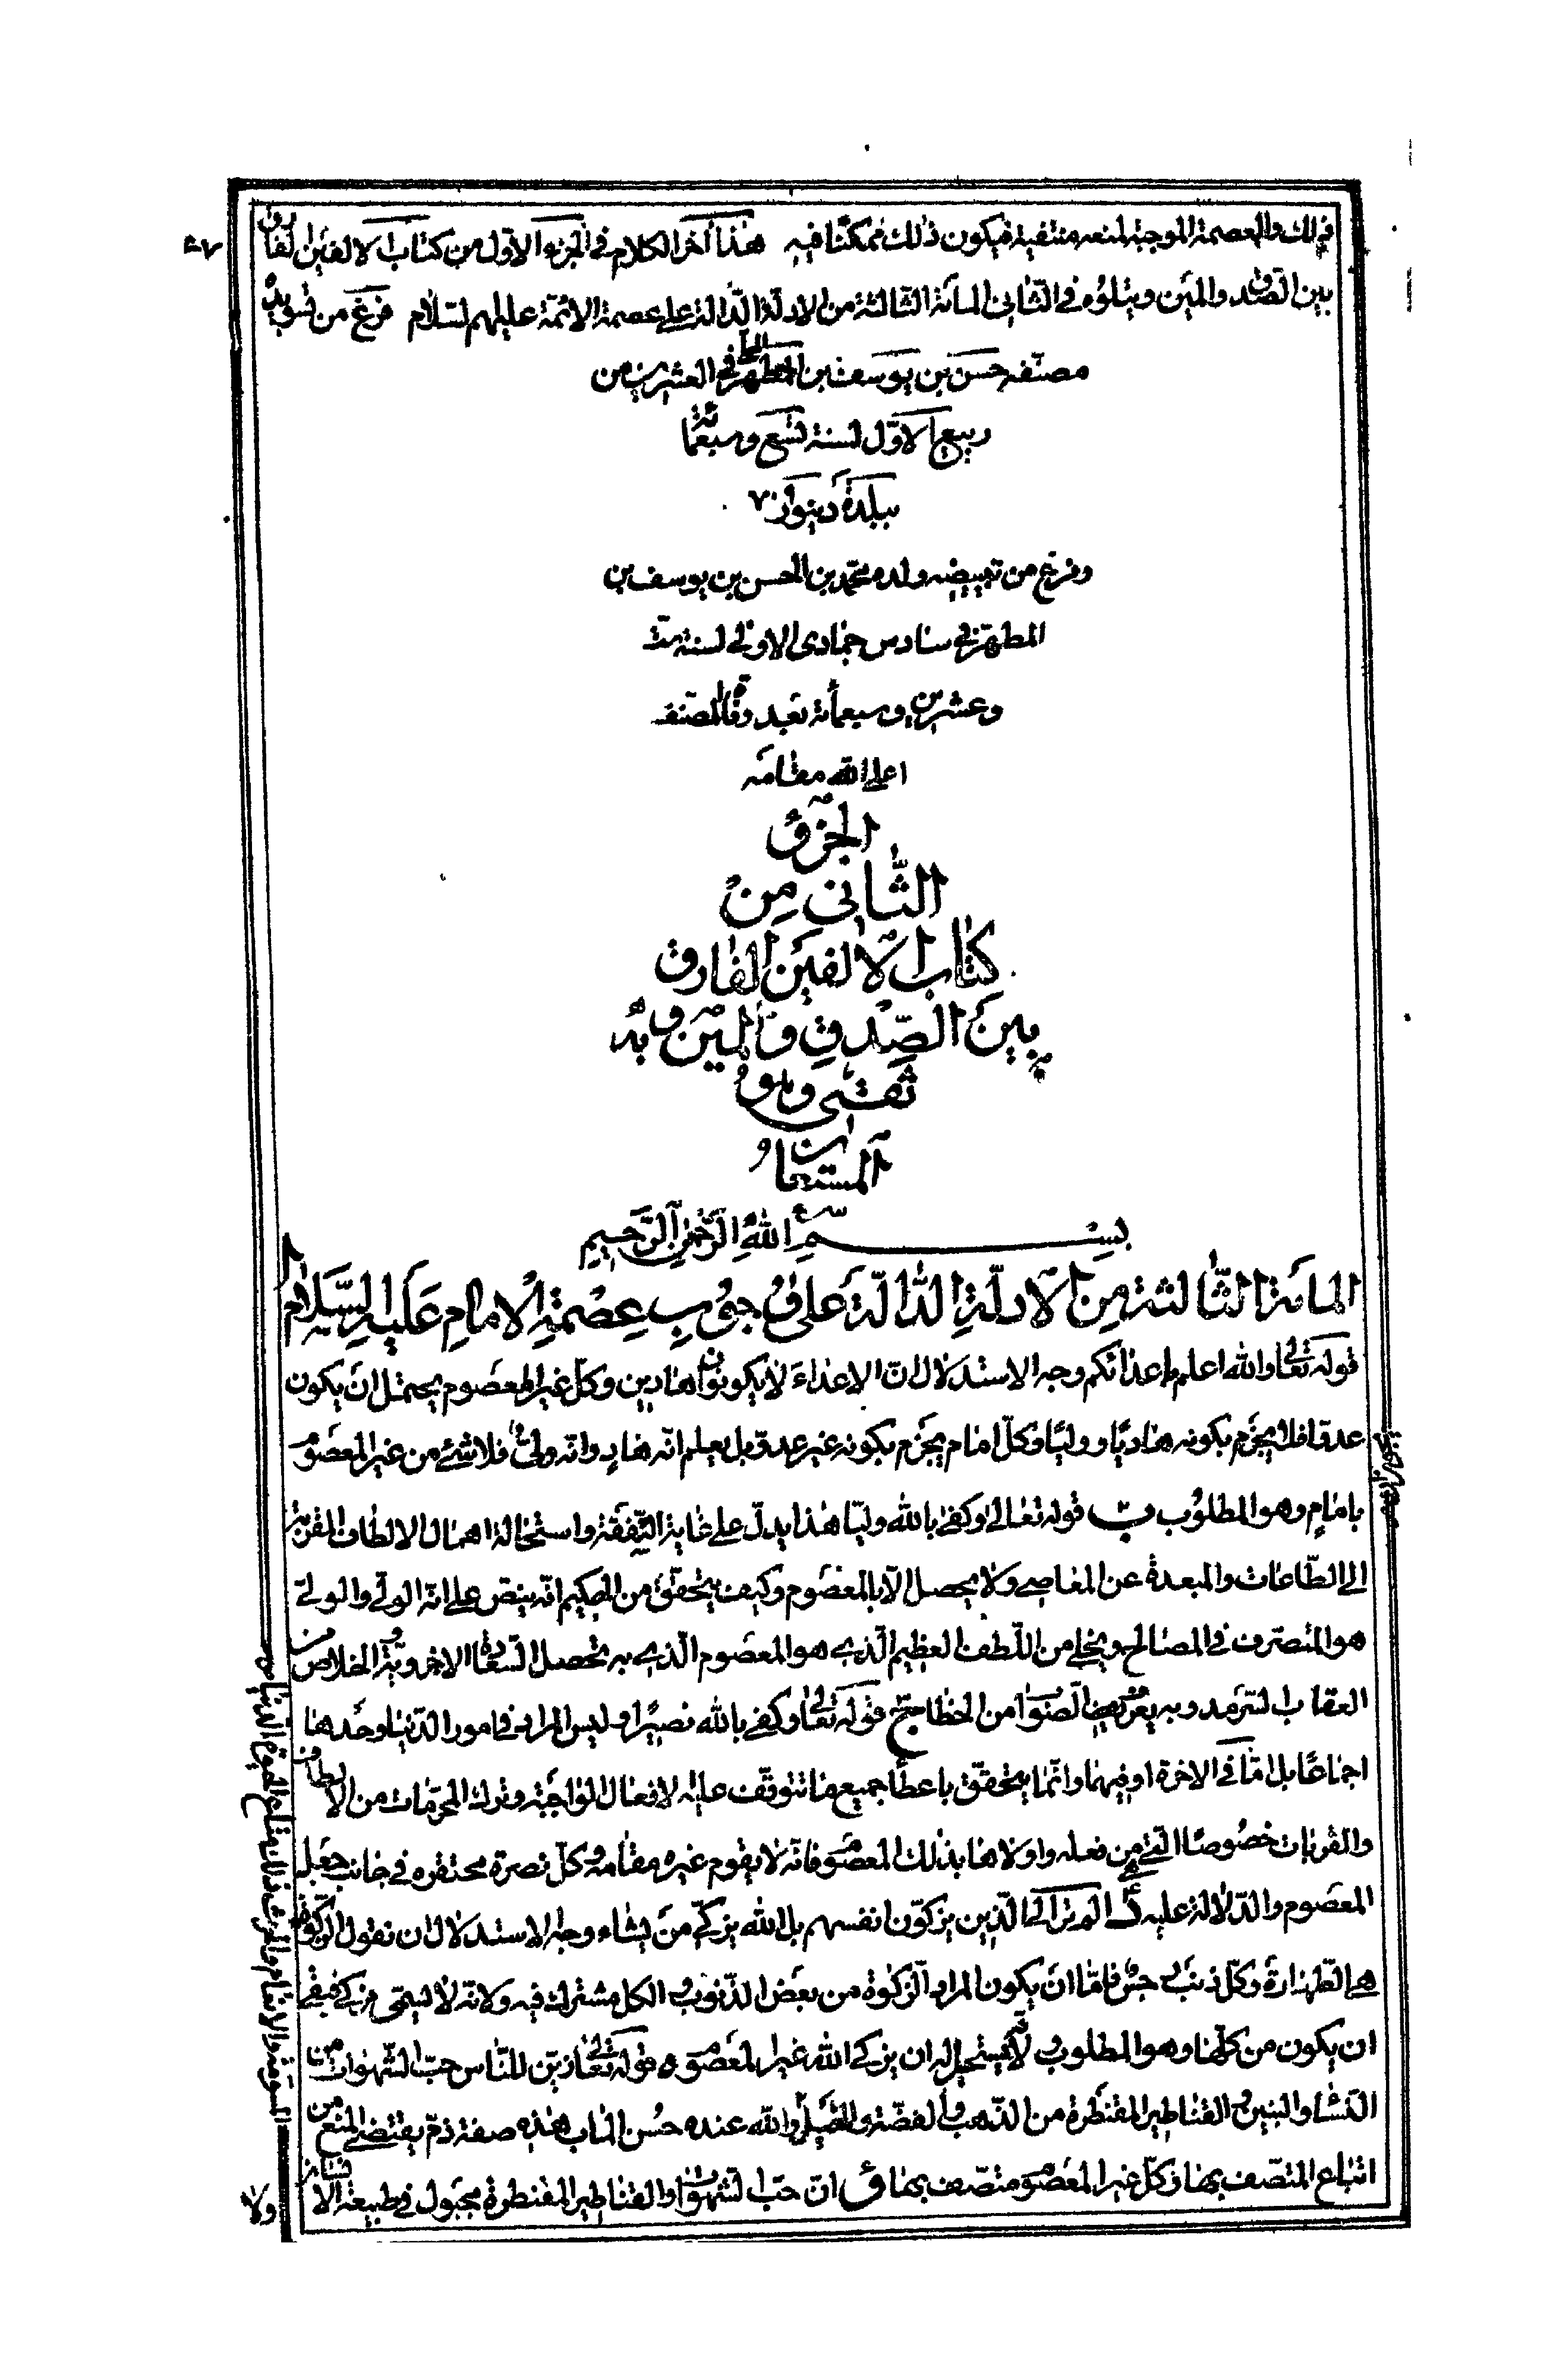 ذلك والعصمة الموجبة لمنعه منتفية فيكون ذلك ممكنا فيه هذا آخر الكلام في الجزء الاول من كتاب الالفين الفارق
بين الصدق والمين ويتلوه في الثاني المائة الثالثة من الادلة الدالة على عصمة الائمة عليهم السلام فرغ من تسويده
مصنفه حسن بن يوسف بن المطهر الحلي في العشرين من
ربيع الاول لسنة تسع وسبعمائة
ببلدة دينور
وفرغ من تبييضه ولده محمد بن الحسن بن يوسف بن
المطهر في سادس جمادى الاولى لسنة ست
وعشرين وسبعمأة بعد وفاة المصنف
اعلى الله مقامه
الجزؤ
الثاني من
كتاب الالفين الفارق
بين الصدق والمين وبه
ثقتي وهو
المستعان
بسم الله الرحمن الرحيم
المائة الثالثة من الادلة الدالة على وجوب عصمة الامام عليه السلام ا
قوله تعالى والله اعلم باعدائكم وجه الاستدلال ان الاعداء لا يكونون هادين وكل غير المعصوم يحتمل ان يكون
عدوا فلا يجزم بكونه هاديا ووليا وكل امام يجزم بكونه غير عدو بل يعلم انه هاد وانه ولي فلا شئ من غير المعصوم
بامام وهو المطلوب ب قوله تعالى وكفى بالله وليا هذا يدل على غاية الشفقة واستحالة اهمال الالطاف المقربة
الى الطاعات والمبعدة عن المعاصي ولا يحصل الا بالمعصوم وكيف يتحقق من الحكيم انه ينص على انه الولي والولي
هو المتصرف في المصالح ويخلي من اللطف العظيم الذي هو المعصوم الذي به تحصل السعادة الاخروية والخلاص من
العقاب السرمد وبه يعرف الصواب من الخطا ج قوله تعالى وكفى بالله نصيرا وليس المراد في امور الدنيا وحدها
اجماعا بل اما في الاخرة او فيهما وانما يتحقق باعطاء جميع ما تتوقف عليه الافعال الواجبة وترك المحرمات من الالطاف
والقربات خصوصا التي من فعله واولاها بذلك المعصوم فانه لا يقوم غيره مقامه وكل نصرة محتقره في جانب جعله
المعصوم والدلالة عليه د الم تر الى الذين يزكون انفسهم بل الله يزكي من يشاء وجه الاستدلال ان نقول الزكوة
هي الطهارة وكل ذنب رجس فاما ان يكون المراد الزكوة من بعض الذنوب والكل مشترك فيه ولانه لا يسمى مزكى فبقي
ان يكون من كلها وهو المطلوب لانه يستحيل ان يزكي الله غير المعصوم ه قوله تعالى زين للناس حب الشهوات من
النساء والبنين والقناطير المقنطرة من الذهب والفضة والخيل والله عنده حسن المآب هذه صفة ذم يقتضي المنع من
اتباع المتصف بها وكل غير المعصوم متصف بها و ان حب الشهوات والقناطير المقنطرة مجبول في طبيعة الانسان
ولا
المسومة والانعام والحرث ذلك متاع الحيوة الدنيا